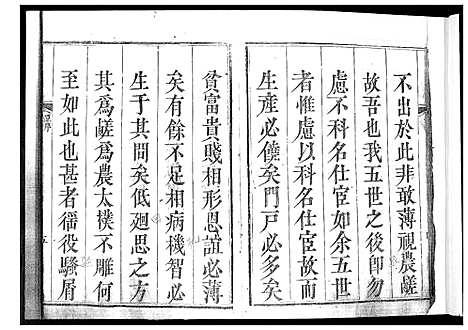 不出於此非敢薄視農鹺
故吾也我五世之後即勿
慮不科名仕宦如余五世
者惟慮以科名仕宦故而
生産必儉矣門戸必多矣
貧富貴賤相形恩誼必薄
矣有餘不足相病機智必
生于其間矣低廻思之方
其爲鹺爲農太樸不雕何
至如此也甚者徭役騷屑
五